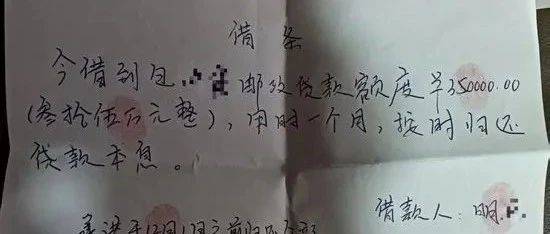 借条
今借到包 邮政贷款额度￥350000.00
(叁拾伍万元整)，用时一个月，按时归还
贷款本息。
借款人：明